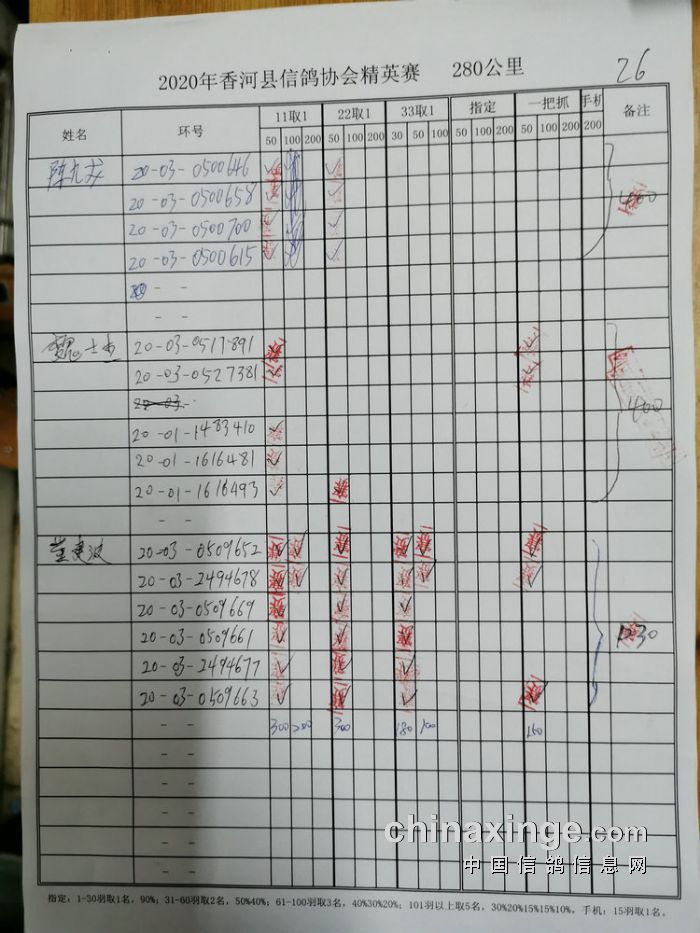 2020年香河县信鸽协会精英赛 280公里
26
姓名 环号 11取1 22取1 33取1 指定 一把抓 手机 备注
50 100 200 50 100 200 30 50 100 50 100 200 50 100 200 200
20-03-0500646
20-03-0500658
20-03-0500700 400
20-03-0500615
- -
- -
魏士杰 20-03-0517891
20-03-0527381
20-03-
20-01-1483410 400
20-01-1616481
20-01-1616493
- -
董建波 20-03-0509652
20-03-2494678
20-03-0509669
20-03-0509661 1230
20-03-2494677
20-03-0509663
- - 300 200 300 180 100 150
- -
- -
- -
- -
- -
chinaxinge.com
中国信鸽信息网
指定：1-30羽取1名，90%；31-60羽取2名，50%40%；61-100羽取3名，40%30%20%；101羽以上取5名，30%20%15%15%10%，手机：15羽取1名。